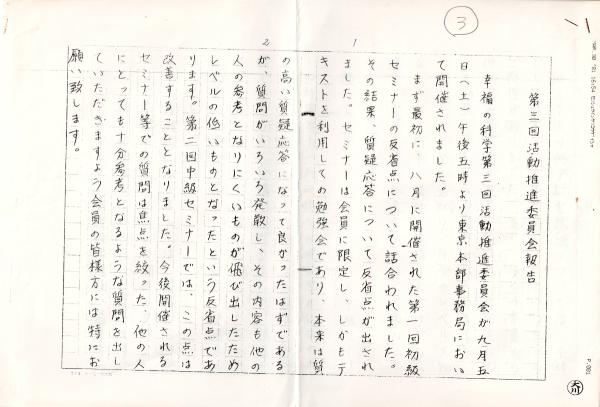 ③
第三回活動推進委員会報告
幸福の科学第三回活動推進委員会が九月五
日(土)午後五時より東京本部事務局におい
て開催されました。
まず最初に、八月に開催された第一回初級
セミナーの反省点について話合われました。
その結果、質疑応答について反省点が出され
ました。セミナーは会員に限定し、しかもテ
キストを利用しての勉強会であり、本来は質
の高い質疑応答になって良かったはずである
が、質問がいろいろ発散し、その内容も他の
人の参考となりにくいものが飛び出したため
レベルの低いものとなったという反省点であ
ります。第二回中級セミナーでは、この点は
改善することとなりました。今後開催される
セミナー等での質問は焦点を絞った、他の人
にとっても十分参考となるような質問を出し
ていただきますよう会員の皆様方には特にお
願い致します。
1
2
P.001